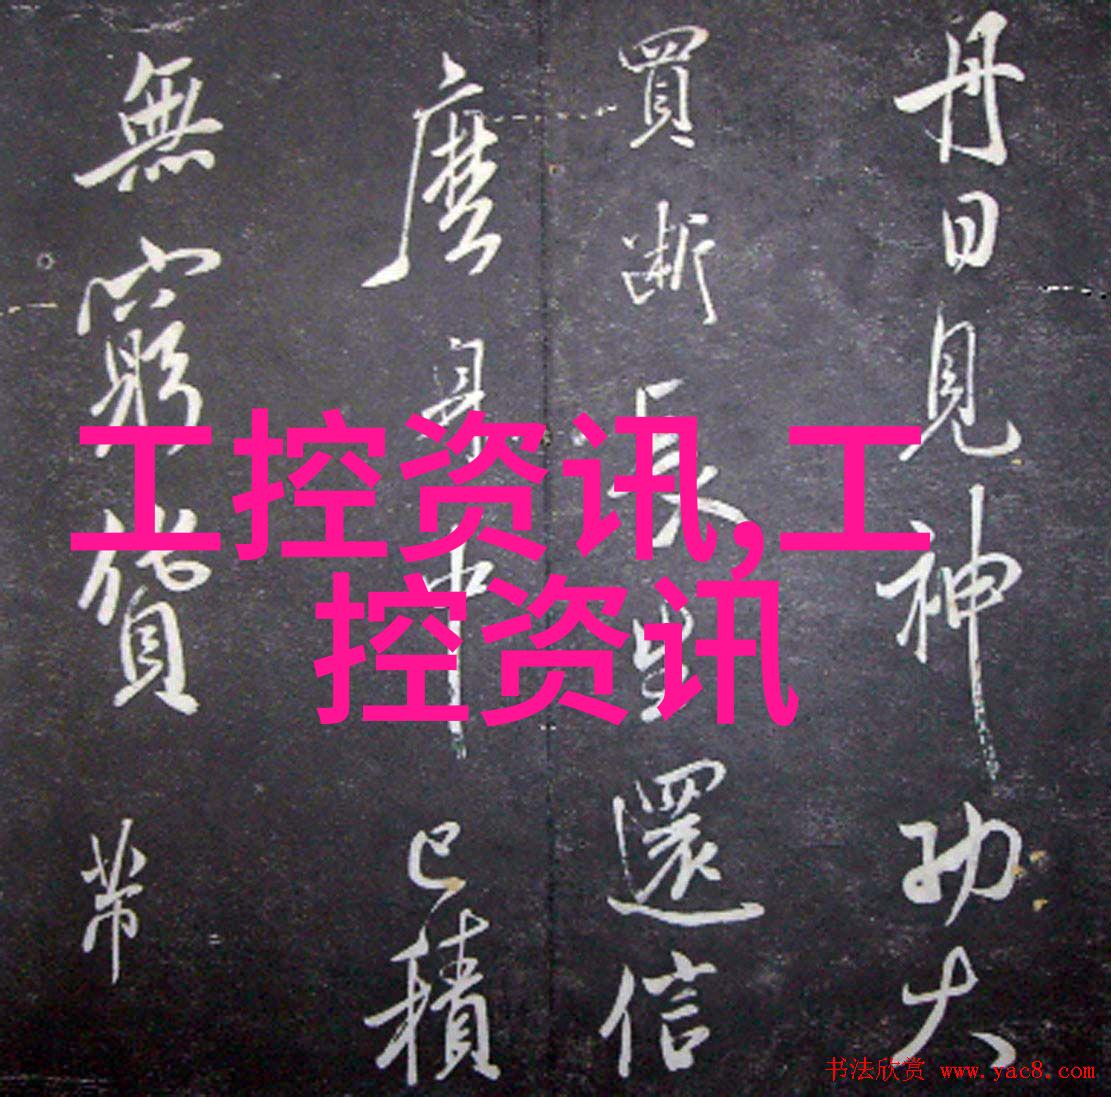 丹日見神功大
買斷長生還信
身中已積
無窮貨
工控资讯,工
控资讯
书法欣赏 www.yac8.com